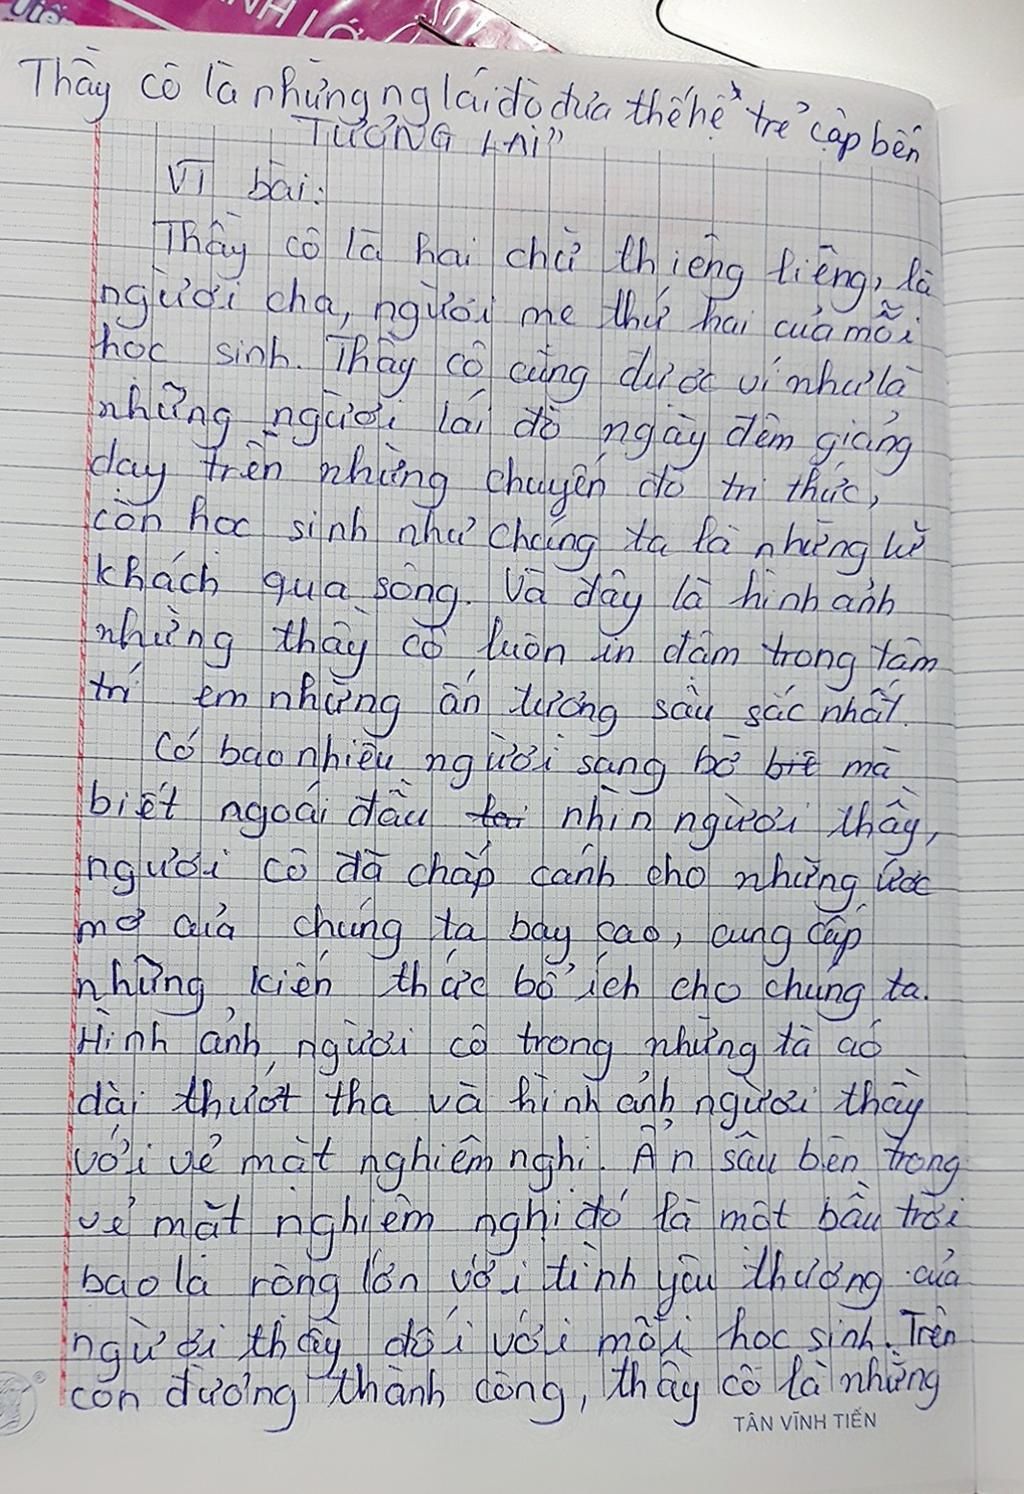 Viế
NH LỚ
Thầy cô là những ng lái đò đưa thế hệ trẻ cập bến
TƯƠNG LAI"
Vĩ bài:
Thầy cô là hai chữ thiêng liêng, là
người cha, người mẹ thứ hai của mỗi
học sinh. Thầy cô cũng được ví như là
những người lái đò ngày đêm giảng
dạy trên những chuyến đò tri thức,
còn học sinh như chúng ta là những kẻ
khách qua sông. Và đây là hình ảnh
những thầy cô luôn in đậm trong tâm
trí em những ấn tượng sâu sắc nhất.
Có bao nhiêu người sang bờ biế mà
biết ngoái đầu nhìn người thầy,
người cô đã chắp cánh cho những ước
mơ của chúng ta bay cao, cung cấp
những kiến thức bổ ích cho chúng ta.
Hình ảnh người cô trong những tà áo
dài thướt tha và hình ảnh người thầy
với vẻ mặt nghiêm nghị. Ẩn sâu bên trong
vẻ mặt nghiêm nghị đó là một bầu trời
bao la rộng lớn với tình yêu thương của
người thầy đối với mỗi học sinh. Trên
con đường thành công, thầy cô là những
TÂN VĨNH TIẾN